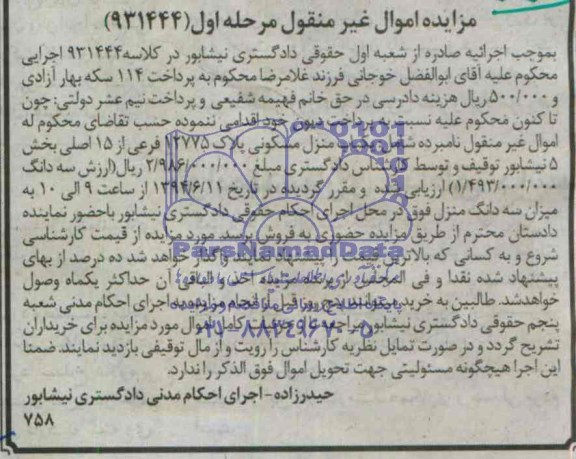 مزایده اموال غیر منقول مرحله اول(۹۳۱۴۴۴)
بموجب اجرائیه صادره از شعبه اول حقوقی دادگستری نیشابور در کلاسه۹۳۱۴۴۴ اجرایی
محکوم علیه آقای ابوالفضل خوجانی فرزند غلامرضا محکوم به پرداخت ۱۱۴ سکه بهار آزادی
و ۵۰۰/۰۰۰ ریال هزینه دادرسی در حق خانم فهیمه شفیعی و پرداخت نیم عشر دولتی: چون
تا کنون محکوم علیه نسبت به پرداخت دیون خود اقدامی ننموده حسب تقاضای محکوم له
اموال غیر منقول نامبرده شامل منزل مسکونی پلاک ۱۲۷۷۵ فرعی از ۱۵ اصلی بخش
۵ نیشابور توقیف و توسط کارشناس دادگستری مبلغ ۲/۹۸۶/۰۰۰/۰۰۰ ریال(ارزش سه دانگ
۱/۴۹۳/۰۰۰/۰۰۰) ارزیابی شده و مقرر گردیده در تاریخ ۱۳۹۴/۶/۱۱ از ساعت ۹ الی ۱۰ به
میزان سه دانگ منزل فوق در محل اجرای احکام حقوقی دادگستری نیشابور باحضور نماینده
دادستان محترم از طریق مزایده حضوری به فروش برسد. مورد مزایده از قیمت کارشناسی
شروع و به کسانی که بالاترین قیمت را پیشنهاد نمایند واگذار خواهد شد ده درصد از بهای
پیشنهاد شده نقدا و فی المجلس از برنده مزایده اخذ و الباقی آن حداکثر یکماه وصول
خواهدشد. طالبین به خرید میتوانند پنج روز قبل از انجام مزایده به اجرای احکام مدنی شعبه
پنجم حقوقی دادگستری نیشابور مراجعه تا وضعیت کامل اموال مورد مزایده برای خریداران
تشریح گردد و در صورت تمایل نظریه کارشناس را رویت و از مال توقیفی بازدید نمایند. ضمنا
این اجرا هیچگونه مسئولیتی جهت تحویل اموال فوق الذکر را ندارد.
حیدرزاده - اجرای احکام مدنی دادگستری نیشابور
۷۵۸
ParsNamadData